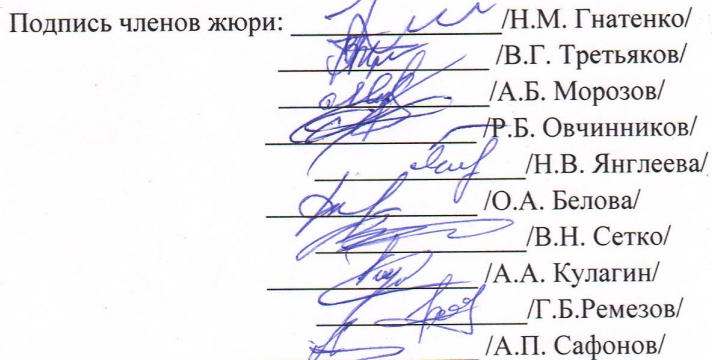 Подпись членов жюри: /Н.М. Гнатенко/
/В.Г. Третьяков/
/А.Б. Морозов/
/Р.Б. Овчинников/
/Н.В. Янглеева/
/О.А. Белова/
/В.Н. Сетко/
/А.А. Кулагин/
/Г.Б.Ремезов/
/А.П. Сафонов/